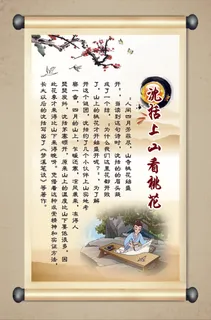 沈括上山看桃花
“人间四月芳菲尽，山寺桃花始盛
开。”当读到这句诗时，沈括的眉头凝
成了一个结，“为什么我们这里花都开败
了，山上的桃花才开始盛开呢？”为了解
开这个谜团，沈括约了几个小伙伴上山实地考
察一番，四月的山上，乍暖还寒，凉风袭来，冻得人
瑟瑟发抖，沈括茅塞顿开，原来山上的温度比山下要低很多，因
此花季才来得比山下来得晚呀。凭借着这种求索精神和实证方法，
长大以后的沈括写出了《梦溪笔谈》